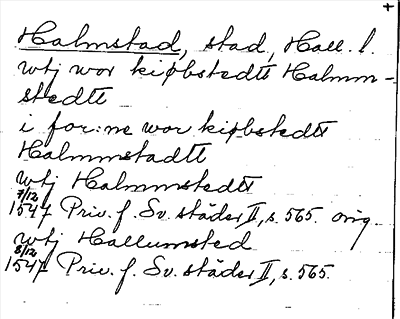 Halmstad, stad, Hall. l.
wtj wor kiøbstedtt Halmm-
stedtt
i for:ne wor kiøbstedtt
Halmmstadtt
wtj Halmmstedtt
7/12 1547 Priv. f. Sv. städer II, s. 565. orig.
wtj Hallumsted
8/12 1547 Priv. f. Sv. städer II, s. 565.